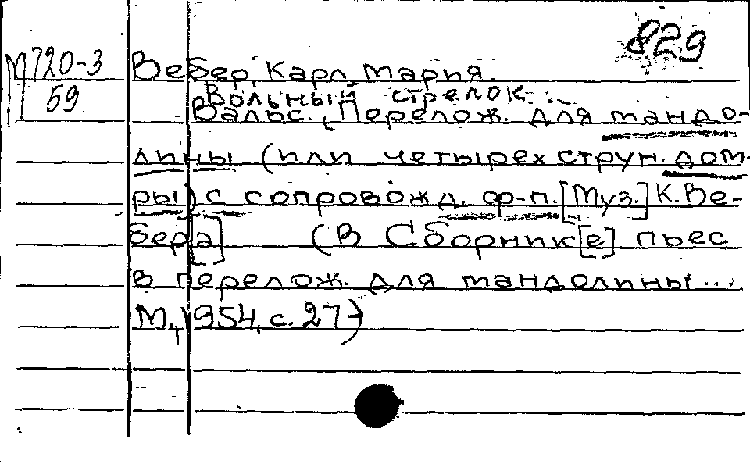 829
М720-3 Вебер, Карл Мария.
59 Вольный стрелок.
Вальс. Перелож. для мандо-
лины (или четырехструн. дом-
ры) с сопровожд. ф-п. [Муз.] К. Ве-
бер[а] (В Сборник[е] пьес
в перелож. для мандолины...
М., 1954, с. 27)